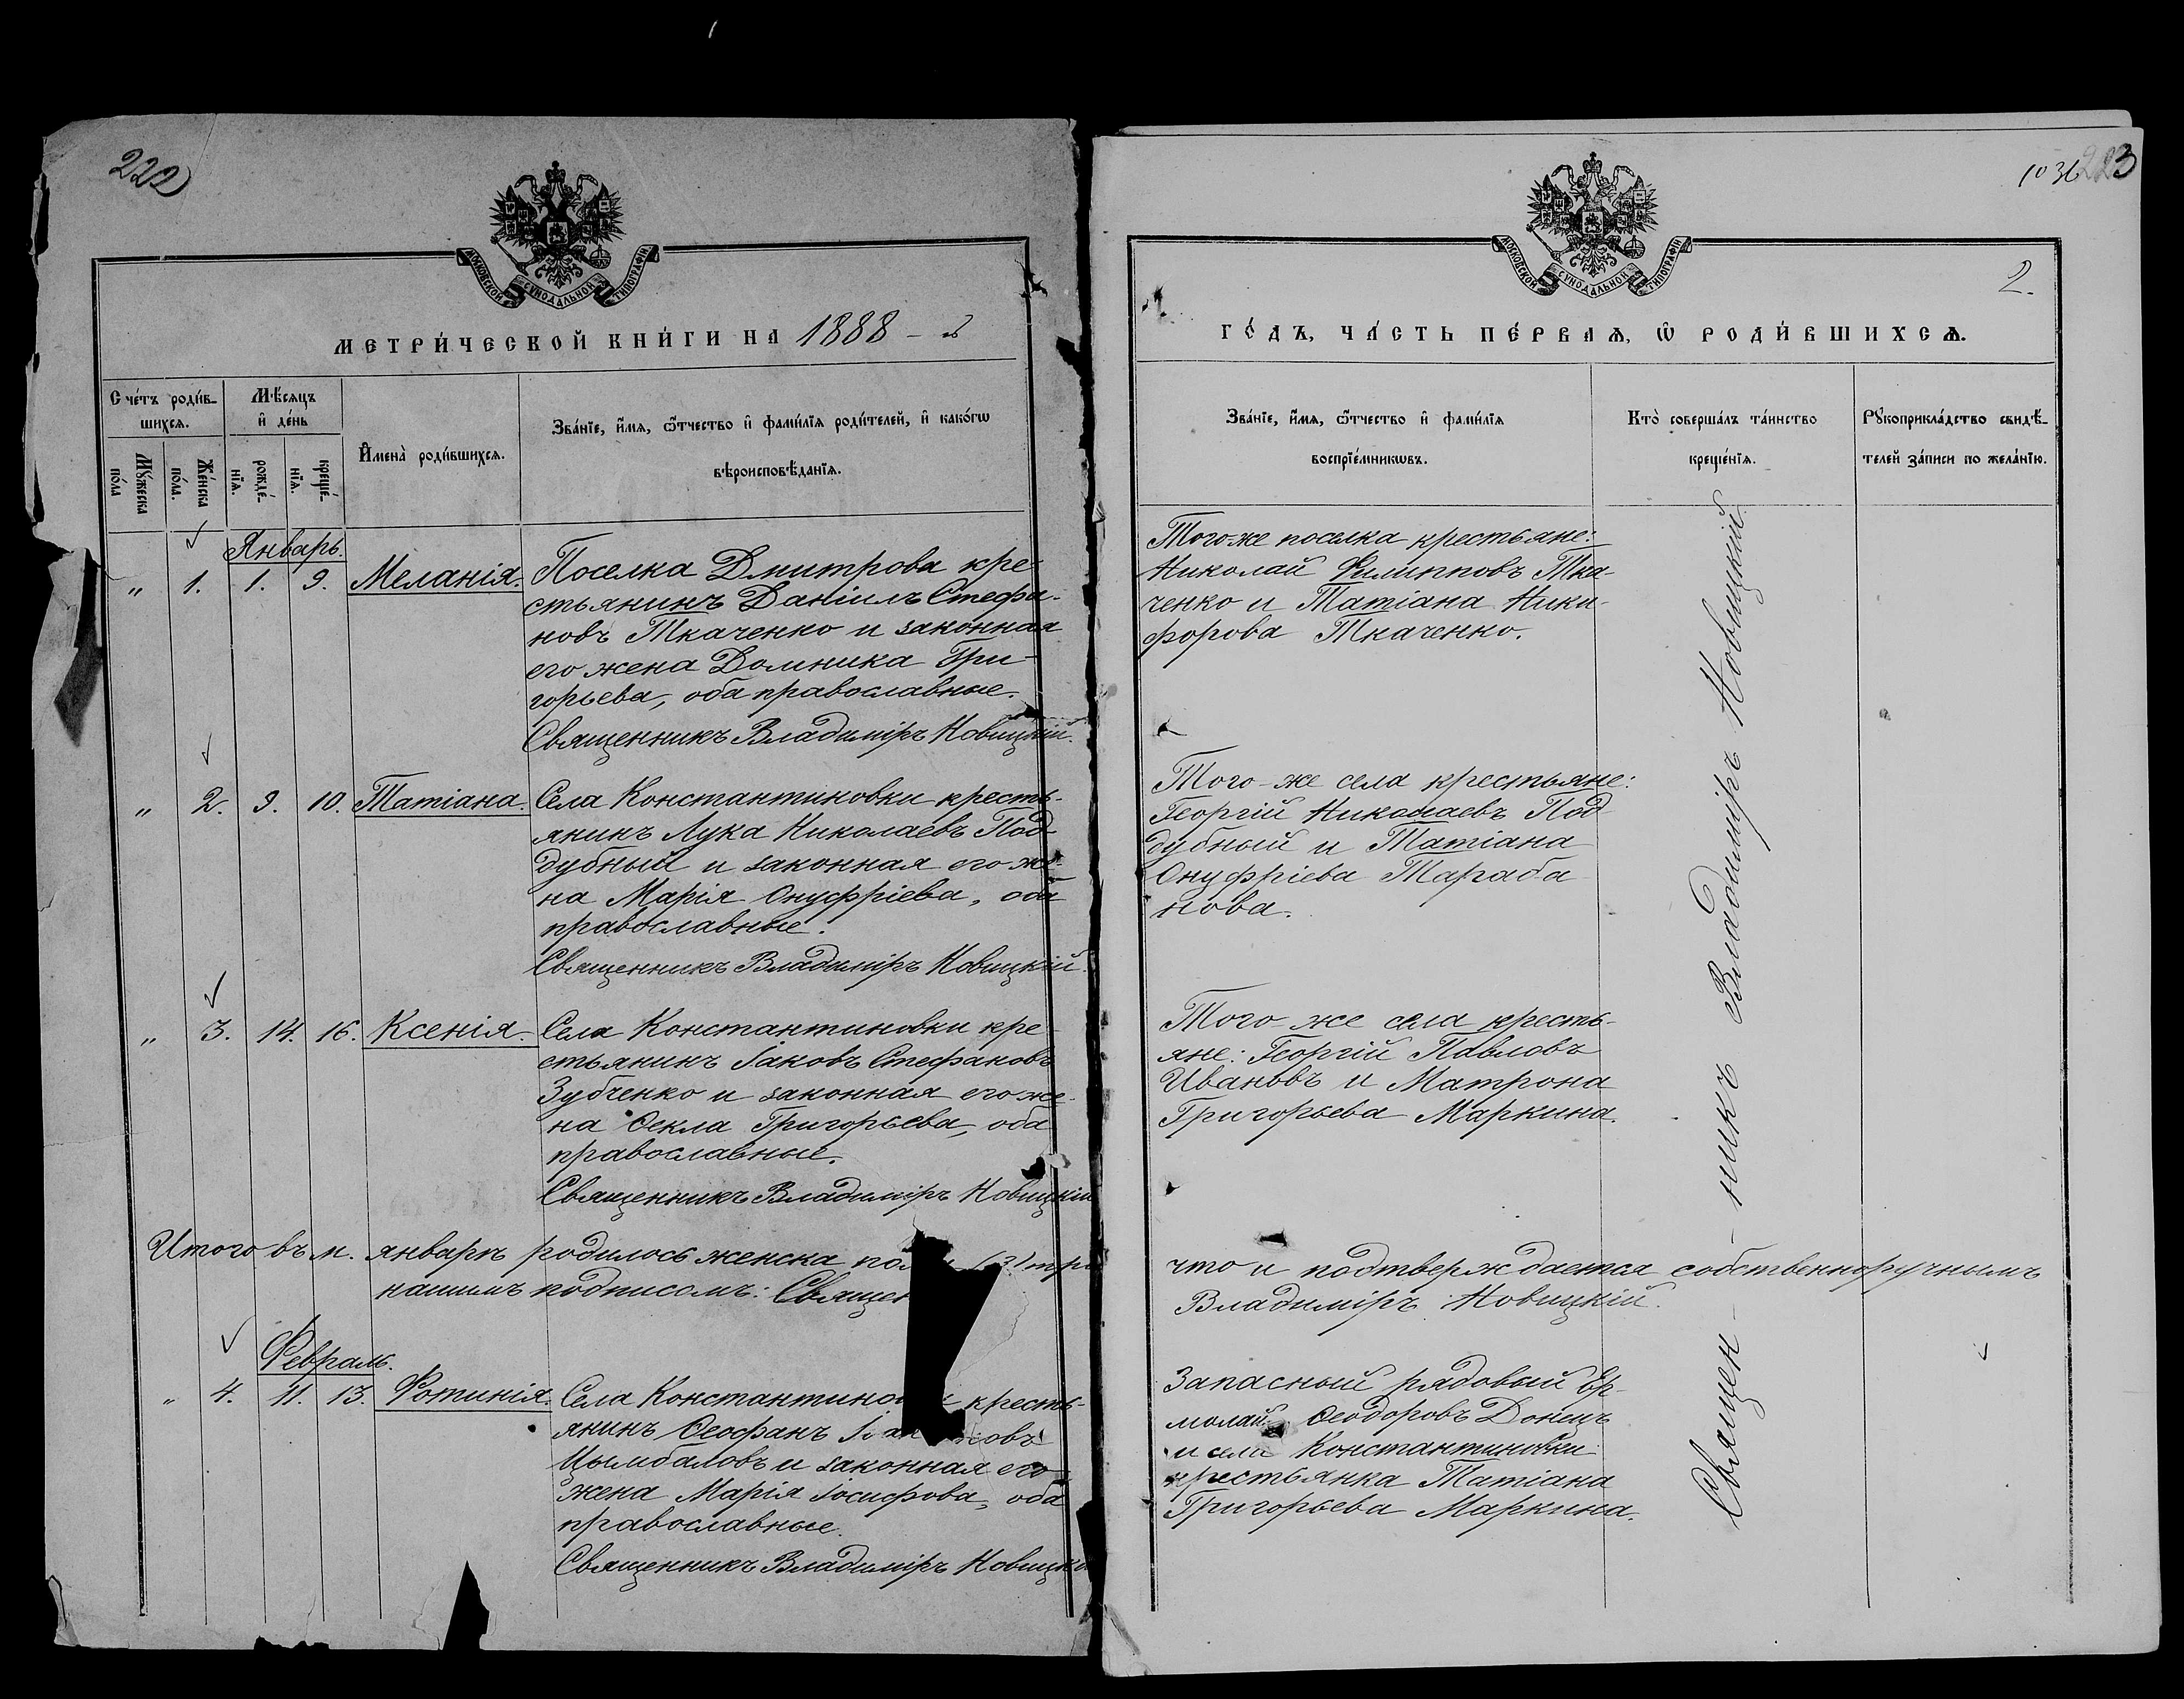 222
МОСКОВСКОЙ СУНОДАЛЬНОЙ ТИПОГРАФІИ
МЕТРИ́ЧЕСКОЙ КНИ́ГИ НА 1888 - й
Сче́тъ роди́в-
шихсѧ.
Мꙋ́жеска
по́ла
Же́нска
по́ла.
Мѣ́сѧцъ
и҆ де́нь
рожде́-
нїѧ.
креще́-
нїѧ.
И҆мена̀ роди́вшихсѧ.
Зва́нїе, и҆́мѧ, ѻ҆́тчество и҆ фами́лїѧ роди́телей, и҆ како́гѡ
вѣроисповѣ́данїѧ.
Январь.
" 1. 1. 9. Меланія. Поселка Дмитрова кре-
стьянинъ Даніилъ Стефа-
новъ Ткаченко и законная
его жена Домника Гри-
горьева, оба православные.
Священникъ Владиміръ Новицкій.
" 2. 9. 10. Татіана. Села Константиновки кресть-
янинъ Лука Николаевъ Под-
дубный и законная его же-
на Марія Онуфріева, оба
православные.
Священникъ Владиміръ Новицкій.
" 3. 14. 16. Ксенія. Села Константиновки кре-
стьянинъ Іаковъ Стефановъ
Зубченко и законная его же-
на Ѳекла Григорьева, оба
православные.
Священникъ Владиміръ Новицкій
Итого въ м. январѣ родилось женска по (3) три
нашимъ подписомъ: Священ
Февраль.
" 4. 11. 13. Фотинія. Села Константино кресть-
янинъ Ѳеофанъ новъ
Цымбаловъ и законная его
жена Марія Іосифова, оба
православные.
Священникъ Владиміръ Новицкі
1036 223
МОСКОВСКОЙ СУНОДАЛЬНОЙ ТИПОГРАФІИ
2.
ГО́ДЪ, ЧА́СТЬ ПЕ́РВАѦ, Ѡ҆ РОДИ́ВШИХСѦ.
Зва́нїе, и҆́мѧ, ѻ҆́тчество и҆ фами́лїѧ
воспрїе́мникѡвъ.
Кто̀ соверша́лъ та́инство
креще́нїѧ.
Рꙋкоприкла́дство свидѣ́-
телей за́писи по жела́нїю.
Тогоже поселка крестьяне:
Николай Филипповъ Тка-
ченко и Татіана Ники-
форова Ткаченко.
Того-же села крестьяне:
Георгій Николаевъ Под-
дубный и Татіана
Онуфріева Тараба-
нова.
Того-же села кресть-
яне: Георгій Павловъ
Ивановъ и Матрона
Григорьева Маркина.
что и подтверждается собственноручнымъ
Владиміръ Новицкій.
Запасный рядовый Ер-
молай Ѳеодоровъ Донецъ
и села Константиновки
крестьянка Татіана
Григорьева Маркина.
Священ - никъ Владиміръ Новицкій